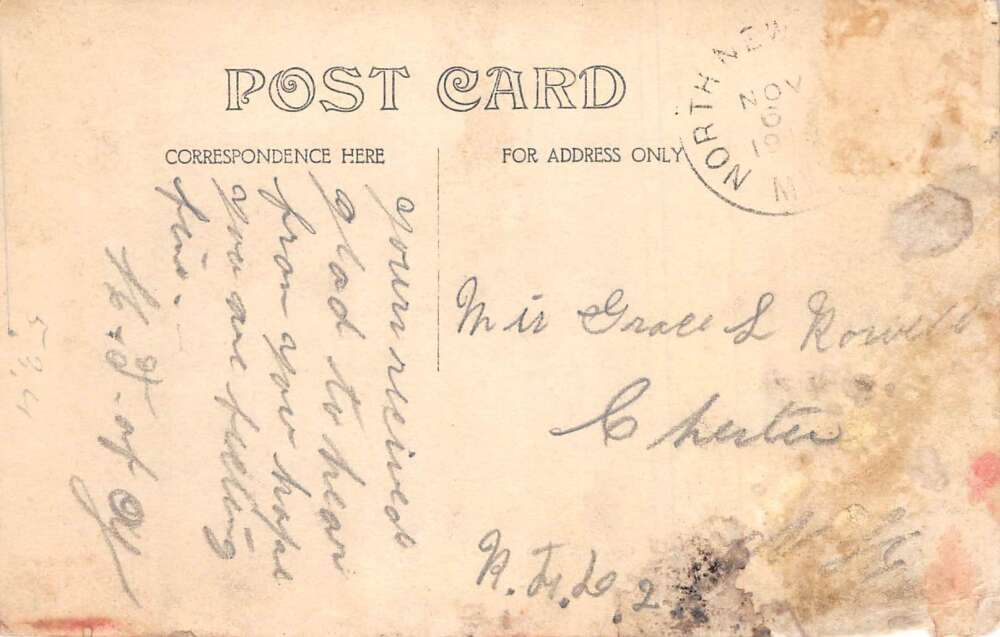 POST CARD
CORRESPONDENCE HERE
FOR ADDRESS ONLY
NORTH NEW
NOV
190
yours recived
glad to hear
from you hope
you are feeling
fine.
of
Miss Grace L Rowell
Chester
R.F.D. 2